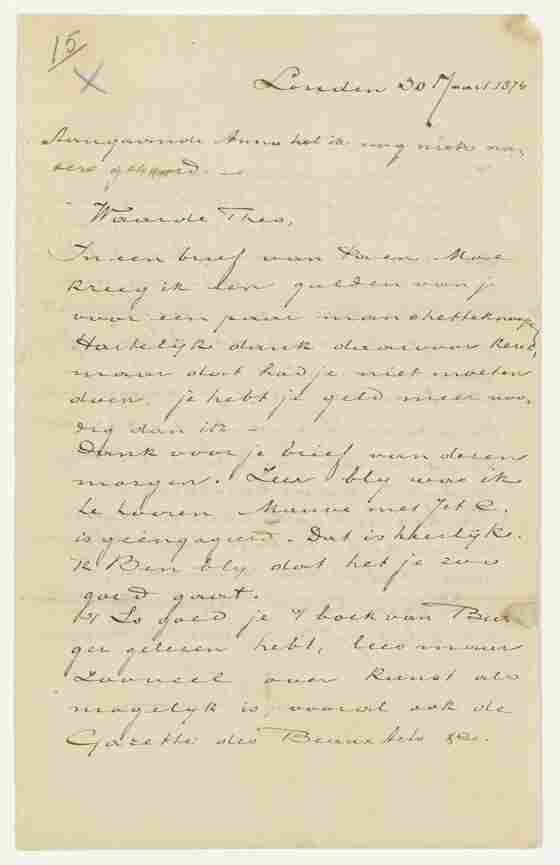 15
X
Londen 30 Maart 1874
Aangaande Anna heb ik nog niets na,
ders gehoord. –
Waarde Theo,
In een brief van Pa en Moe
kreeg ik een gulden van je
voor een paar manchetteknoopen
Hartelijk dank daarvoor kerel,
maar dat had je niet moeten
doen, je hebt je geld meer noo,
dig dan ik –
Dank voor je brief van dezen
morgen. Zeer bly was ik
te hooren Mauve met Jet C.
is geëngageerd. Dat is heerlijk.
Ik Ben bly dat het je zoo
goed gaat.
't Is goed je 't boek van Bur
ger gelezen hebt, lees maar
zooveel over kunst als
mogelyk is, vooral ook de
Gazette des Beaux Arts &c.